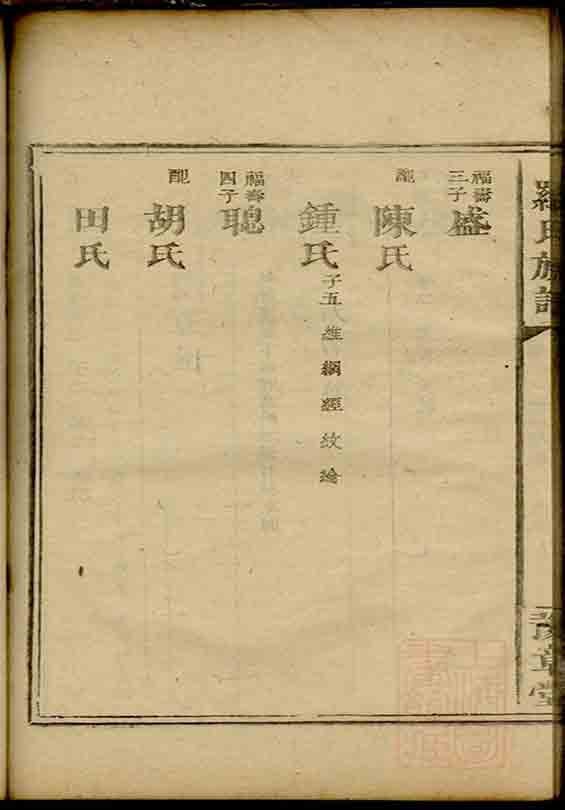 羅氏族譜
豫章堂
福壽三子
盛
配
陳氏
鍾氏 子五 維 綱 經 紋 綸
福壽四子
聰
配
胡氏
田氏